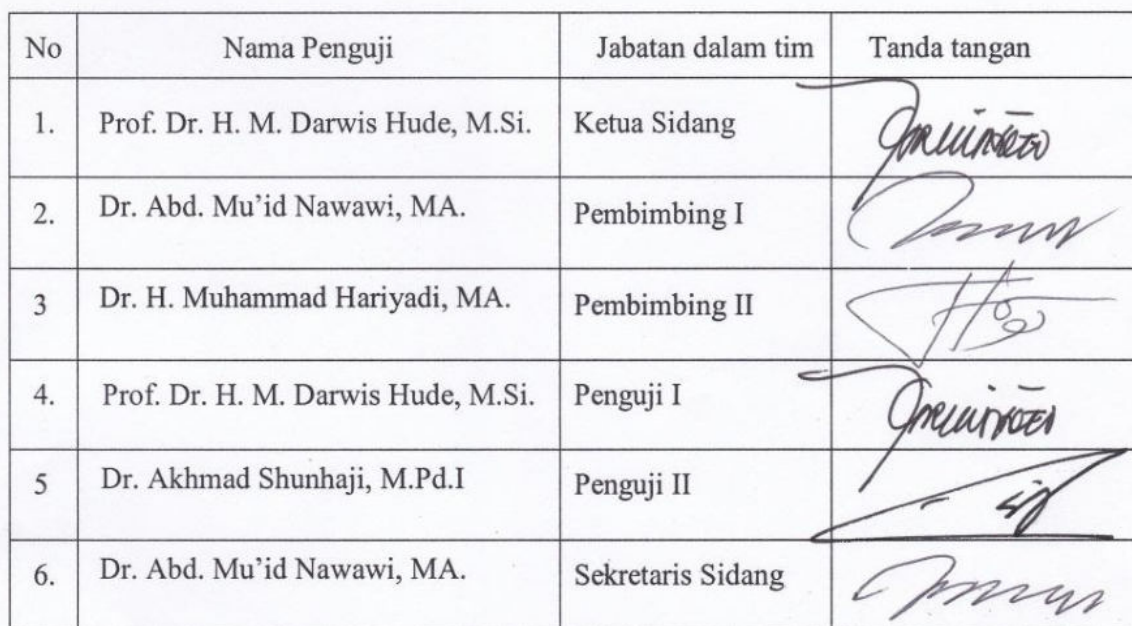 No Nama Penguji Jabatan dalam tim Tanda tangan
1. Prof. Dr. H. M. Darwis Hude, M.Si. Ketua Sidang
2. Dr. Abd. Mu'id Nawawi, MA. Pembimbing I
3 Dr. H. Muhammad Hariyadi, MA. Pembimbing II
4. Prof. Dr. H. M. Darwis Hude, M.Si. Penguji I
5 Dr. Akhmad Shunhaji, M.Pd.I Penguji II
6. Dr. Abd. Mu'id Nawawi, MA. Sekretaris Sidang